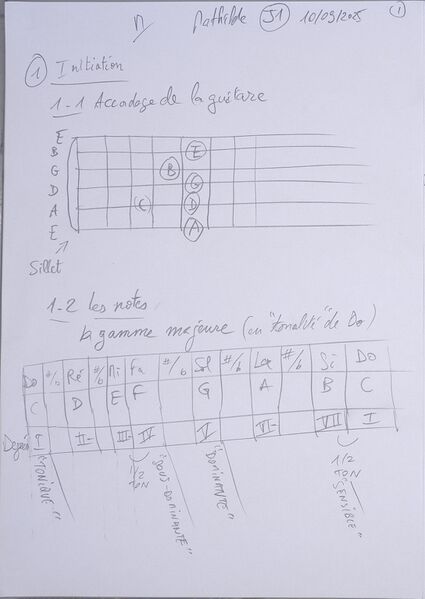 Mathilde J1 10/09/2025 1
1 Initiation
1-1 Accodage de la guitare
E
B E
G B
D G
A C D
E A
Sillet
1-2 Les notes
la gamme majeure (en "tonalité" de Do)
Do #/b Ré #/b Mi Fa #/b Sol #/b La #/b Si Do
C D E F G A B C
Degrés I II- III- IV V VI- VII I
"TONIQUE" 1/2 TON "SOUS-DOMINANTE" "DOMINANTE" 1/2 TON "SENSIBLE"